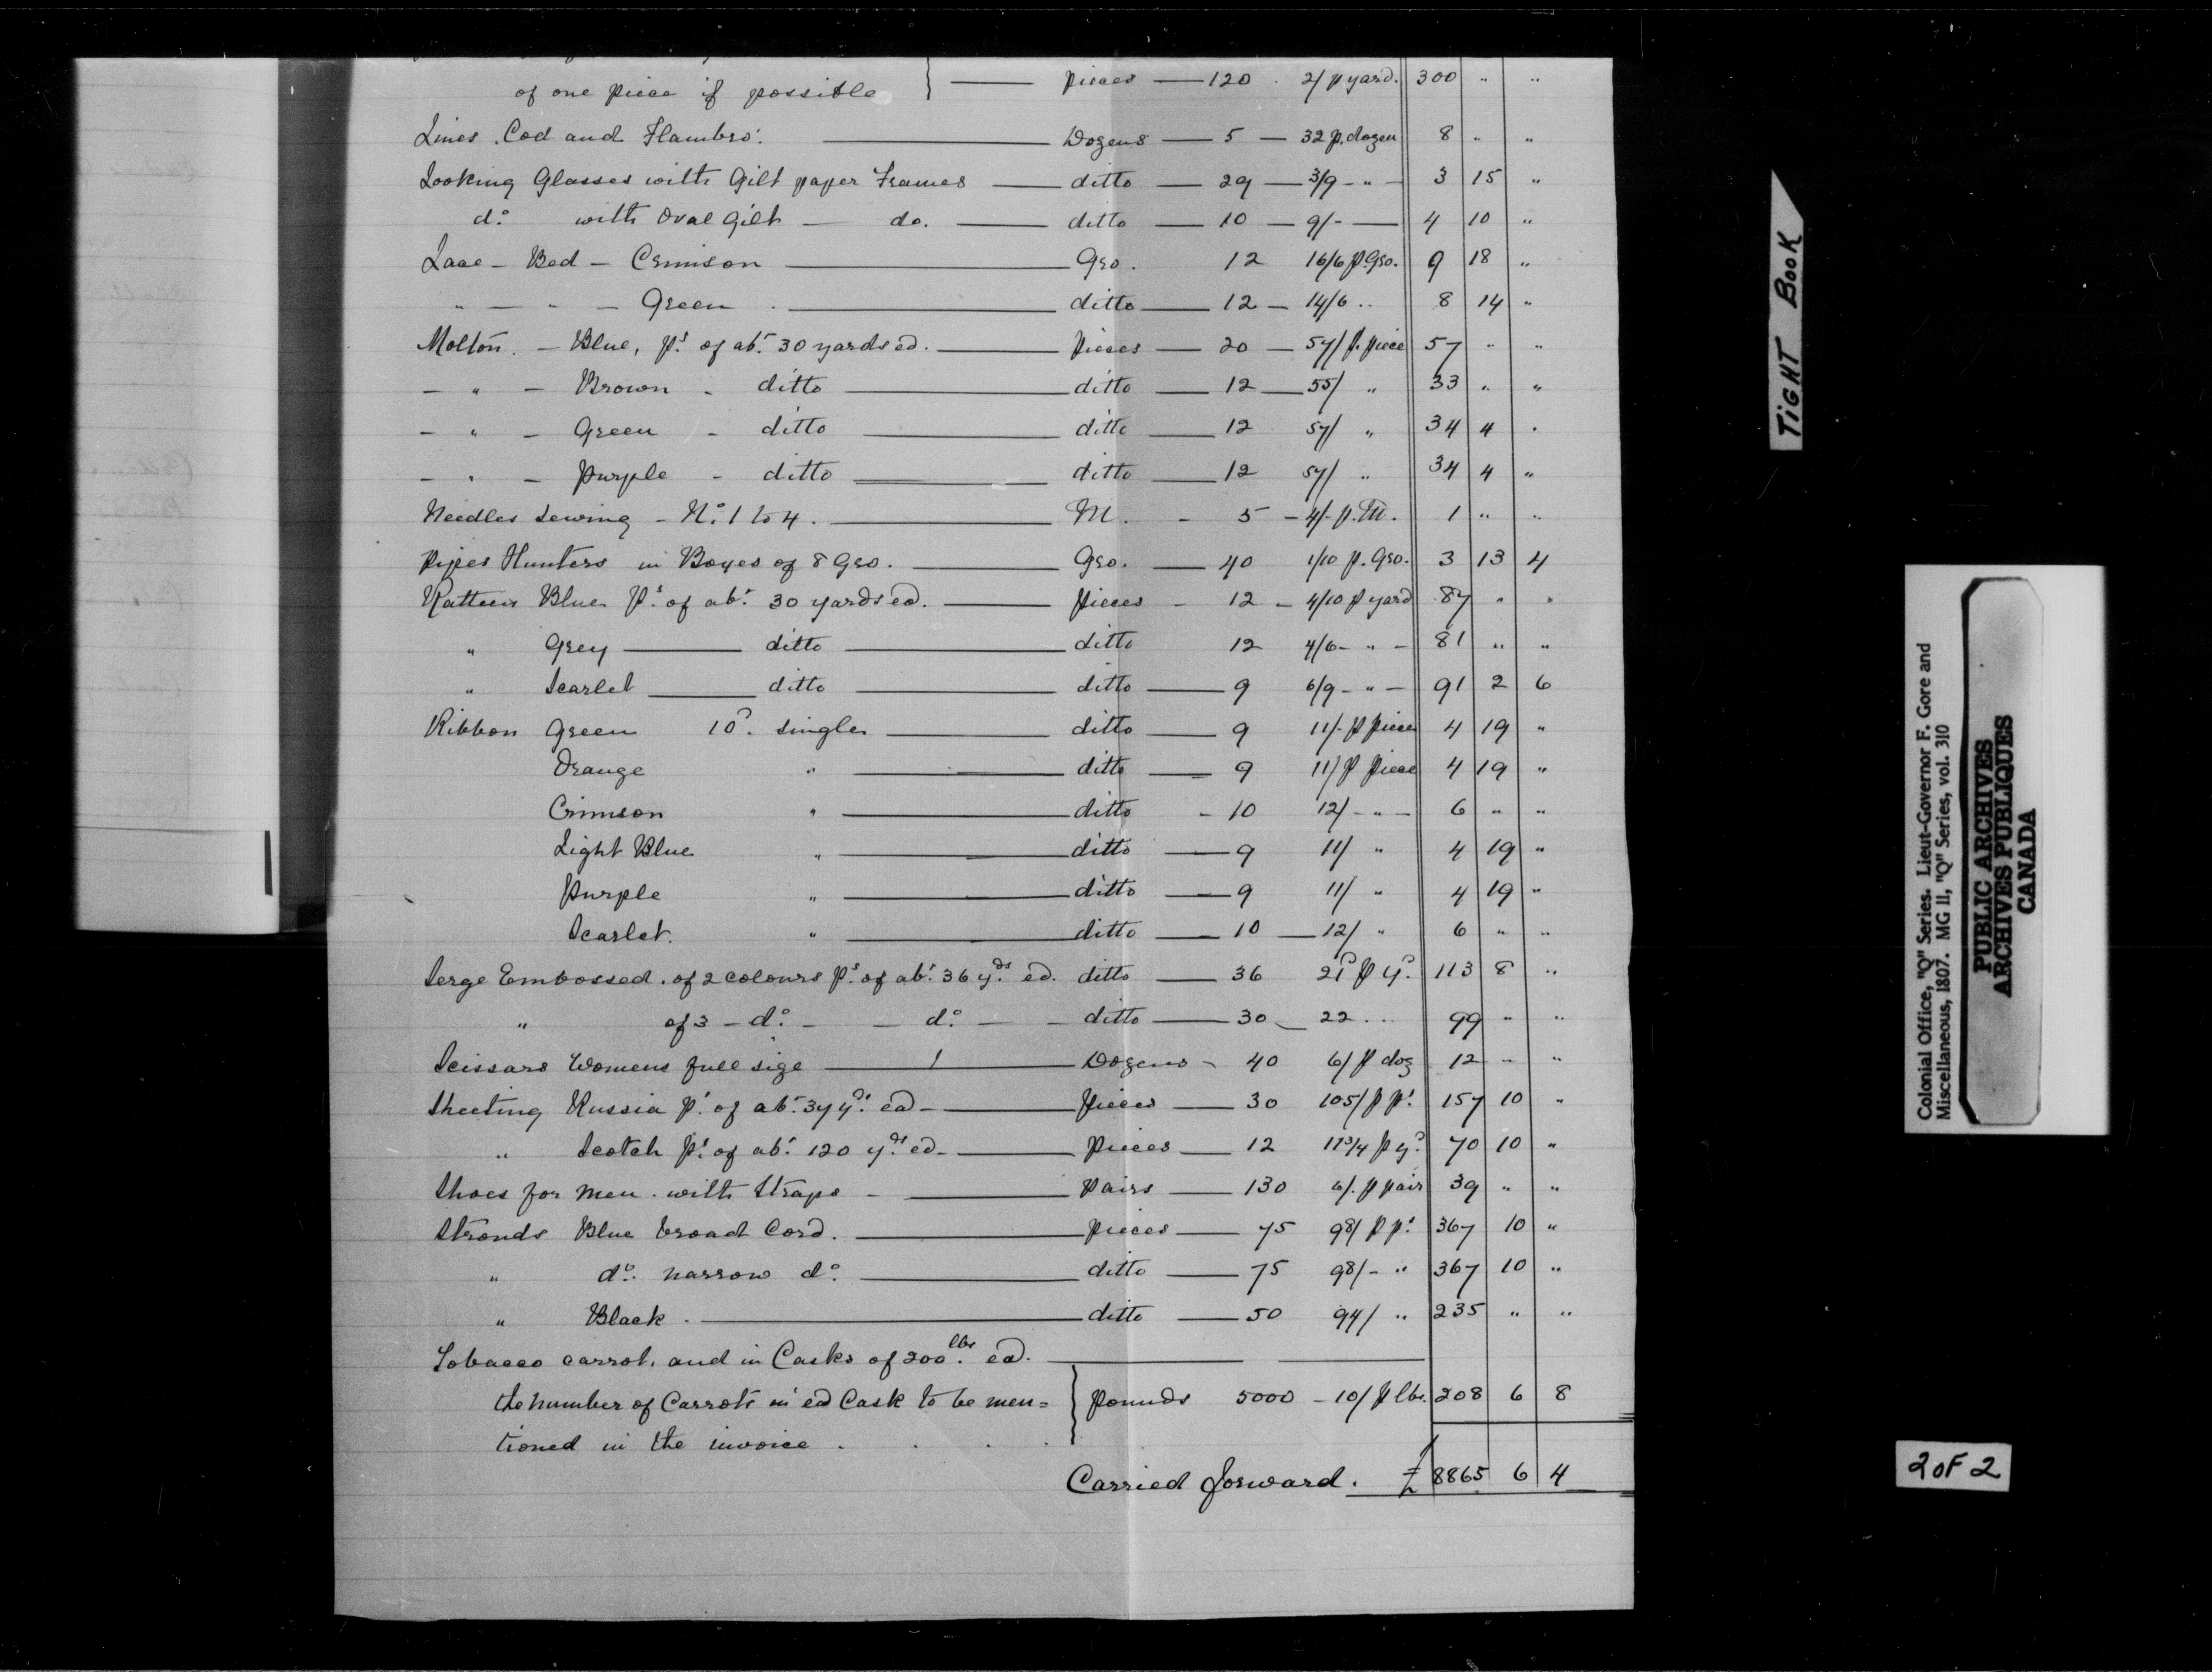 of one piece if possible } — pieces — 120 . 2/ p yard. 300 " "
Lines . Cod and Flambro'. — Dozens — 5 — 32 p. dozen 8 " "
Looking Glasses with Gilt paper Frames — ditto — 29 — 3/9 - " - 3 15 "
do. with Oval Gilt — do. — ditto — 10 — 9/- — 4 10 "
Lace - Bed - Crimson — Gro. 12 16/6 p. Gro. 9 18 "
" — " — Green . — ditto — 12 — 14/6 .. 8 14 "
Molton. — Blue, ps. of abt. 30 yards ed. — pieces — 20 — 57/ p. piece 57 " "
— " — Brown - ditto — ditto — 12 — 55/ " 33 " "
— " — Green - ditto — ditto — 12 57/ " 34 4 "
— " — purple - ditto — ditto — 12 57/ " 34 4 "
Needles Sewing - No. 1 to 4. — M. - 5 - 4/- p. M. 1 " "
Pipes Hunters in Boxes of 8 Gro. — Gro. — 40 1/10 p. Gro. 3 13 4
Ratteen Blue ps. of abt. 30 yards ed. — pieces - 12 - 4/10 p yard 87 " "
" Grey — ditto — ditto 12 4/6 - " - 81 " "
" Scarlet — ditto — ditto — 9 6/9 - " - 91 2 6
Ribbon Green 10d. single — ditto — 9 11/- p piece 4 19 "
Orange " — ditto — 9 11/ p piece 4 19 "
Crimson " — ditto - 10 12/ - " - 6 " "
Light Blue " — ditto — 9 11/ " 4 19 "
purple " — ditto — 9 11/ " 4 19 "
Scarlet. " — ditto — 10 — 12/ " 6 " "
Serge Embossed . of 2 colours ps. of abt. 36 yds. ed. ditto — 36 21d p yd. 113 8 "
" of 3 - do. - - do. — - ditto — 30 — 22 ... 99 " "
Scissars Womens full size — Dozens - 40 6/ p doz 12 " "
Sheeting Russia ps. of abt. 37 yds. ed - — pieces — 30 105/ p ps. 157 10 "
" Scotch ps. of abt. 120 yds. ed - — pieces — 12 11 3/4 p yd. 70 10 "
Shoes for men . with Straps - — pairs — 130 6/. p pair 39 " "
Stronds Blue broad Cord. — pieces — 75 98/ p ps. 367 10 "
" do. narrow do. — ditto — 75 98/- " 367 10 "
" Black . — ditto — 50 94/ " 235 " "
Tobacco carrot, and in Casks of 200 lbs. ed. —
the number of Carrots in ed Cask to be men= } pounds 5000 - 10/ p lbs. 208 6 8
tioned in the invoice . . . .
Carried forward. £ 8865 6 4
TIGHT BOOK
Colonial Office, "Q" Series. Lieut-Governor F. Gore and
Miscellaneous, 1807. MG 11, "Q" Series, vol. 310
PUBLIC ARCHIVES
ARCHIVES PUBLIQUES
CANADA
2 OF 2